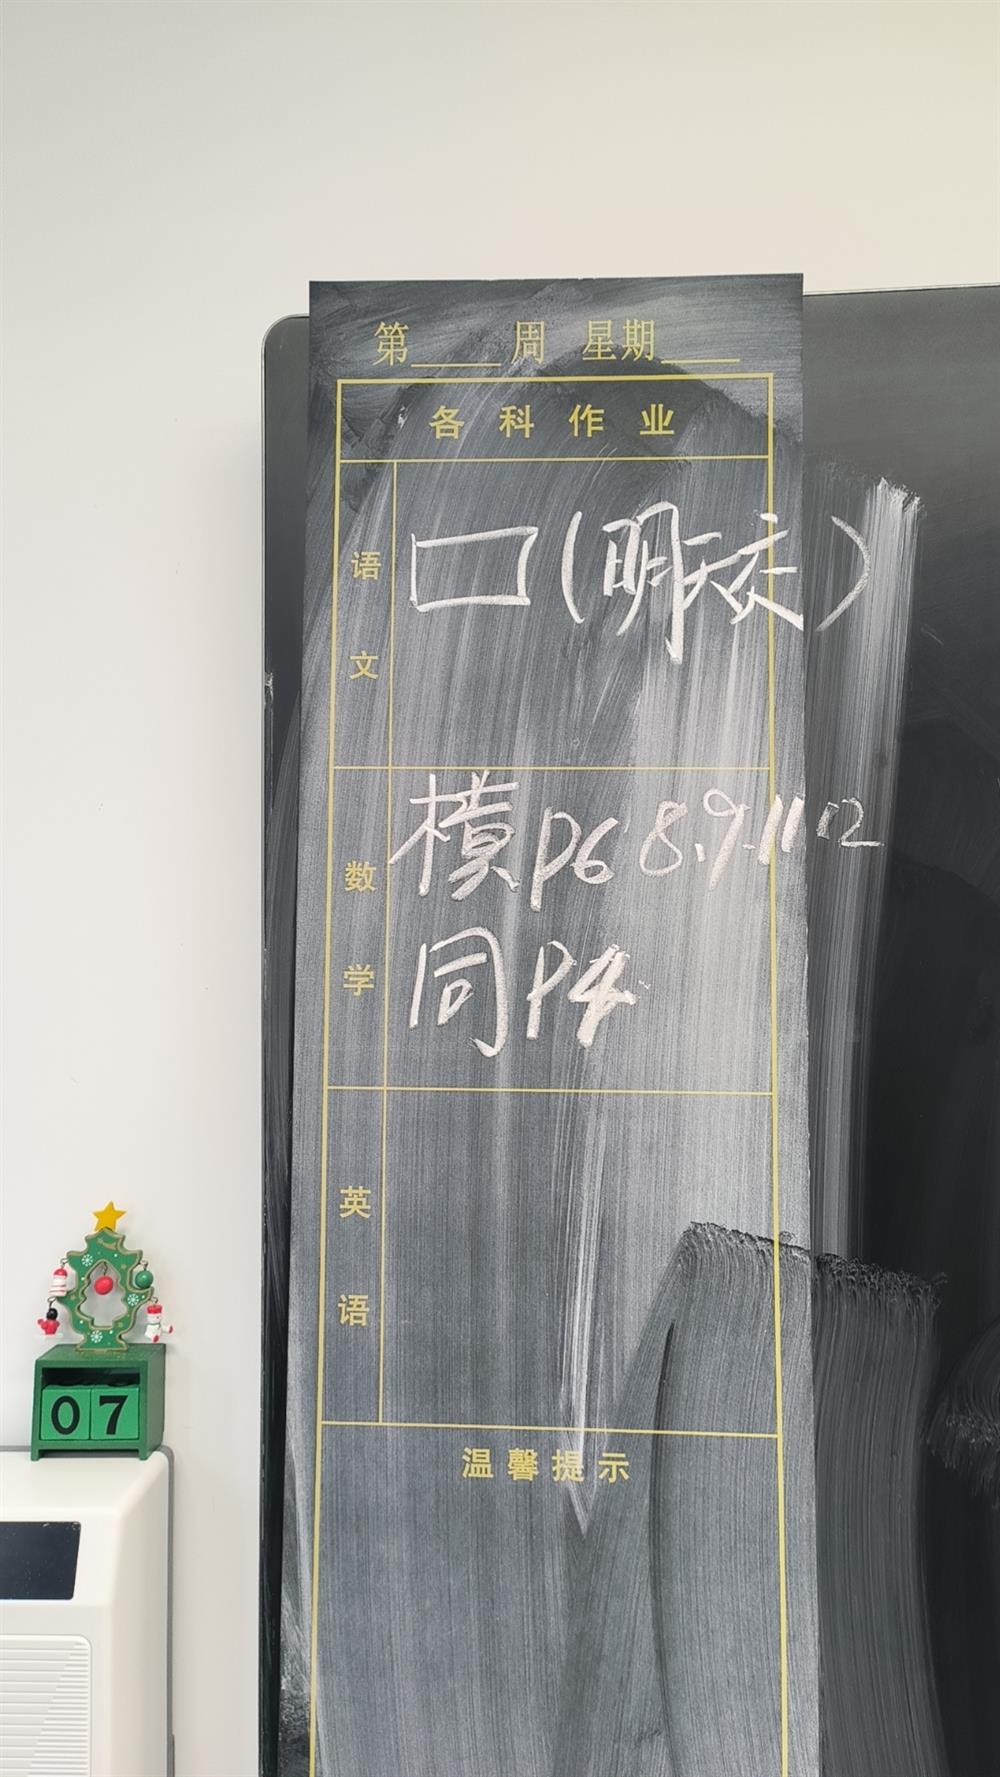 第____周 星期____
各科作业
语文
口(明天交)
数学
横P6 8.9.11.12
同P4
英语
温馨提示
07